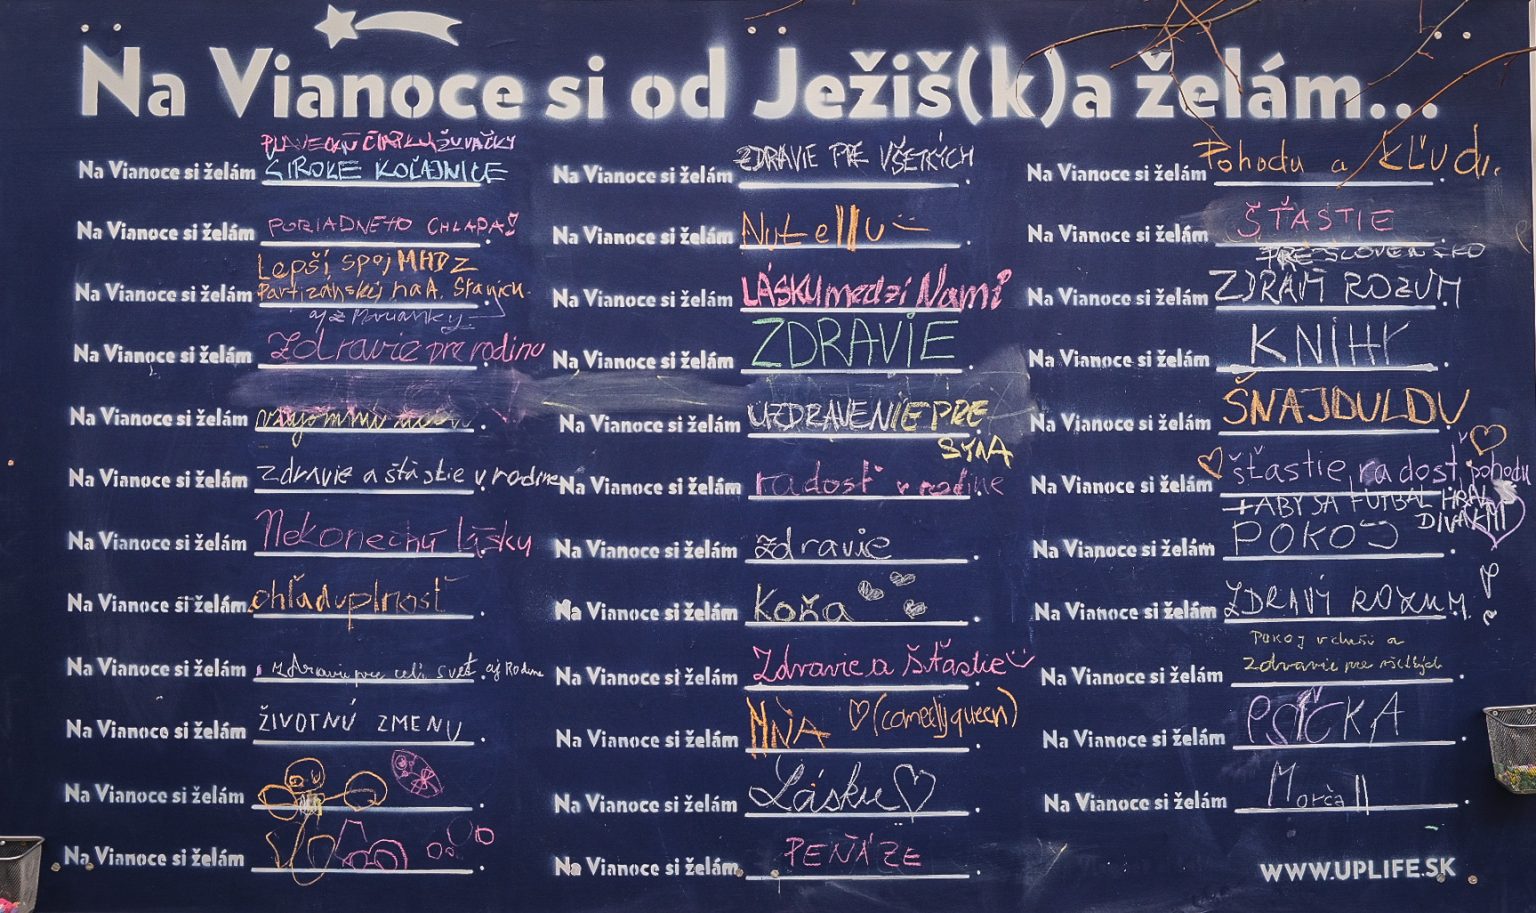 Na Vianoce si od Ježiš(k)a želám...
ŽUVAČKY
Na Vianoce si želám ŠIROKÉ KOĽAJNICE
Na Vianoce si želám PORIADNEHO CHLAPA!
Lepší spoj MHD Z
Na Vianoce si želám Partizánskej na A. Stanicu.
aj z Marianky
Na Vianoce si želám Zdravie pre rodinu
Na Vianoce si želám
Na Vianoce si želám zdravie a šťastie v rodine
Na Vianoce si želám Nekonečnú lásku
Na Vianoce si želám ohľaduplnosť
Na Vianoce si želám zdravie pre celí svet aj Rodine
Na Vianoce si želám ŽIVOTNÚ ZMENU
Na Vianoce si želám
Na Vianoce si želám
Na Vianoce si želám ZDRAVIE PRE VŠETKÝCH
Na Vianoce si želám Nutellu
Na Vianoce si želám LÁSKU medzi Nami
Na Vianoce si želám ZDRAVIE
Na Vianoce si želám UZDRAVENIE PRE
SYNA
Na Vianoce si želám radosť v rodine
Na Vianoce si želám zdravie
Na Vianoce si želám Koňa
Na Vianoce si želám Zdravie a Šťastie
Na Vianoce si želám (comedy queen)
Na Vianoce si želám Lásku
Na Vianoce si želám PEŇAZE
Na Vianoce si želám Pohodu a KĽUD.
Na Vianoce si želám ŠŤASTIE
PRE SLOVENSKO
Na Vianoce si želám ZDRAVÝ ROZUM
Na Vianoce si želám KNIHY
Na Vianoce si želám ŠNAJDULDU
Na Vianoce si želám šťastie, radosť, pohodu
+ ABY SA FUTBAL HRAL
DIVÁKMI
Na Vianoce si želám POKOJ
Na Vianoce si želám ZDRAVÝ ROZUM !
POKOJ v duši a
Na Vianoce si želám zdravie pre všetkých
Na Vianoce si želám PSÍČKA
Na Vianoce si želám Morča
WWW.UPLIFE.SK